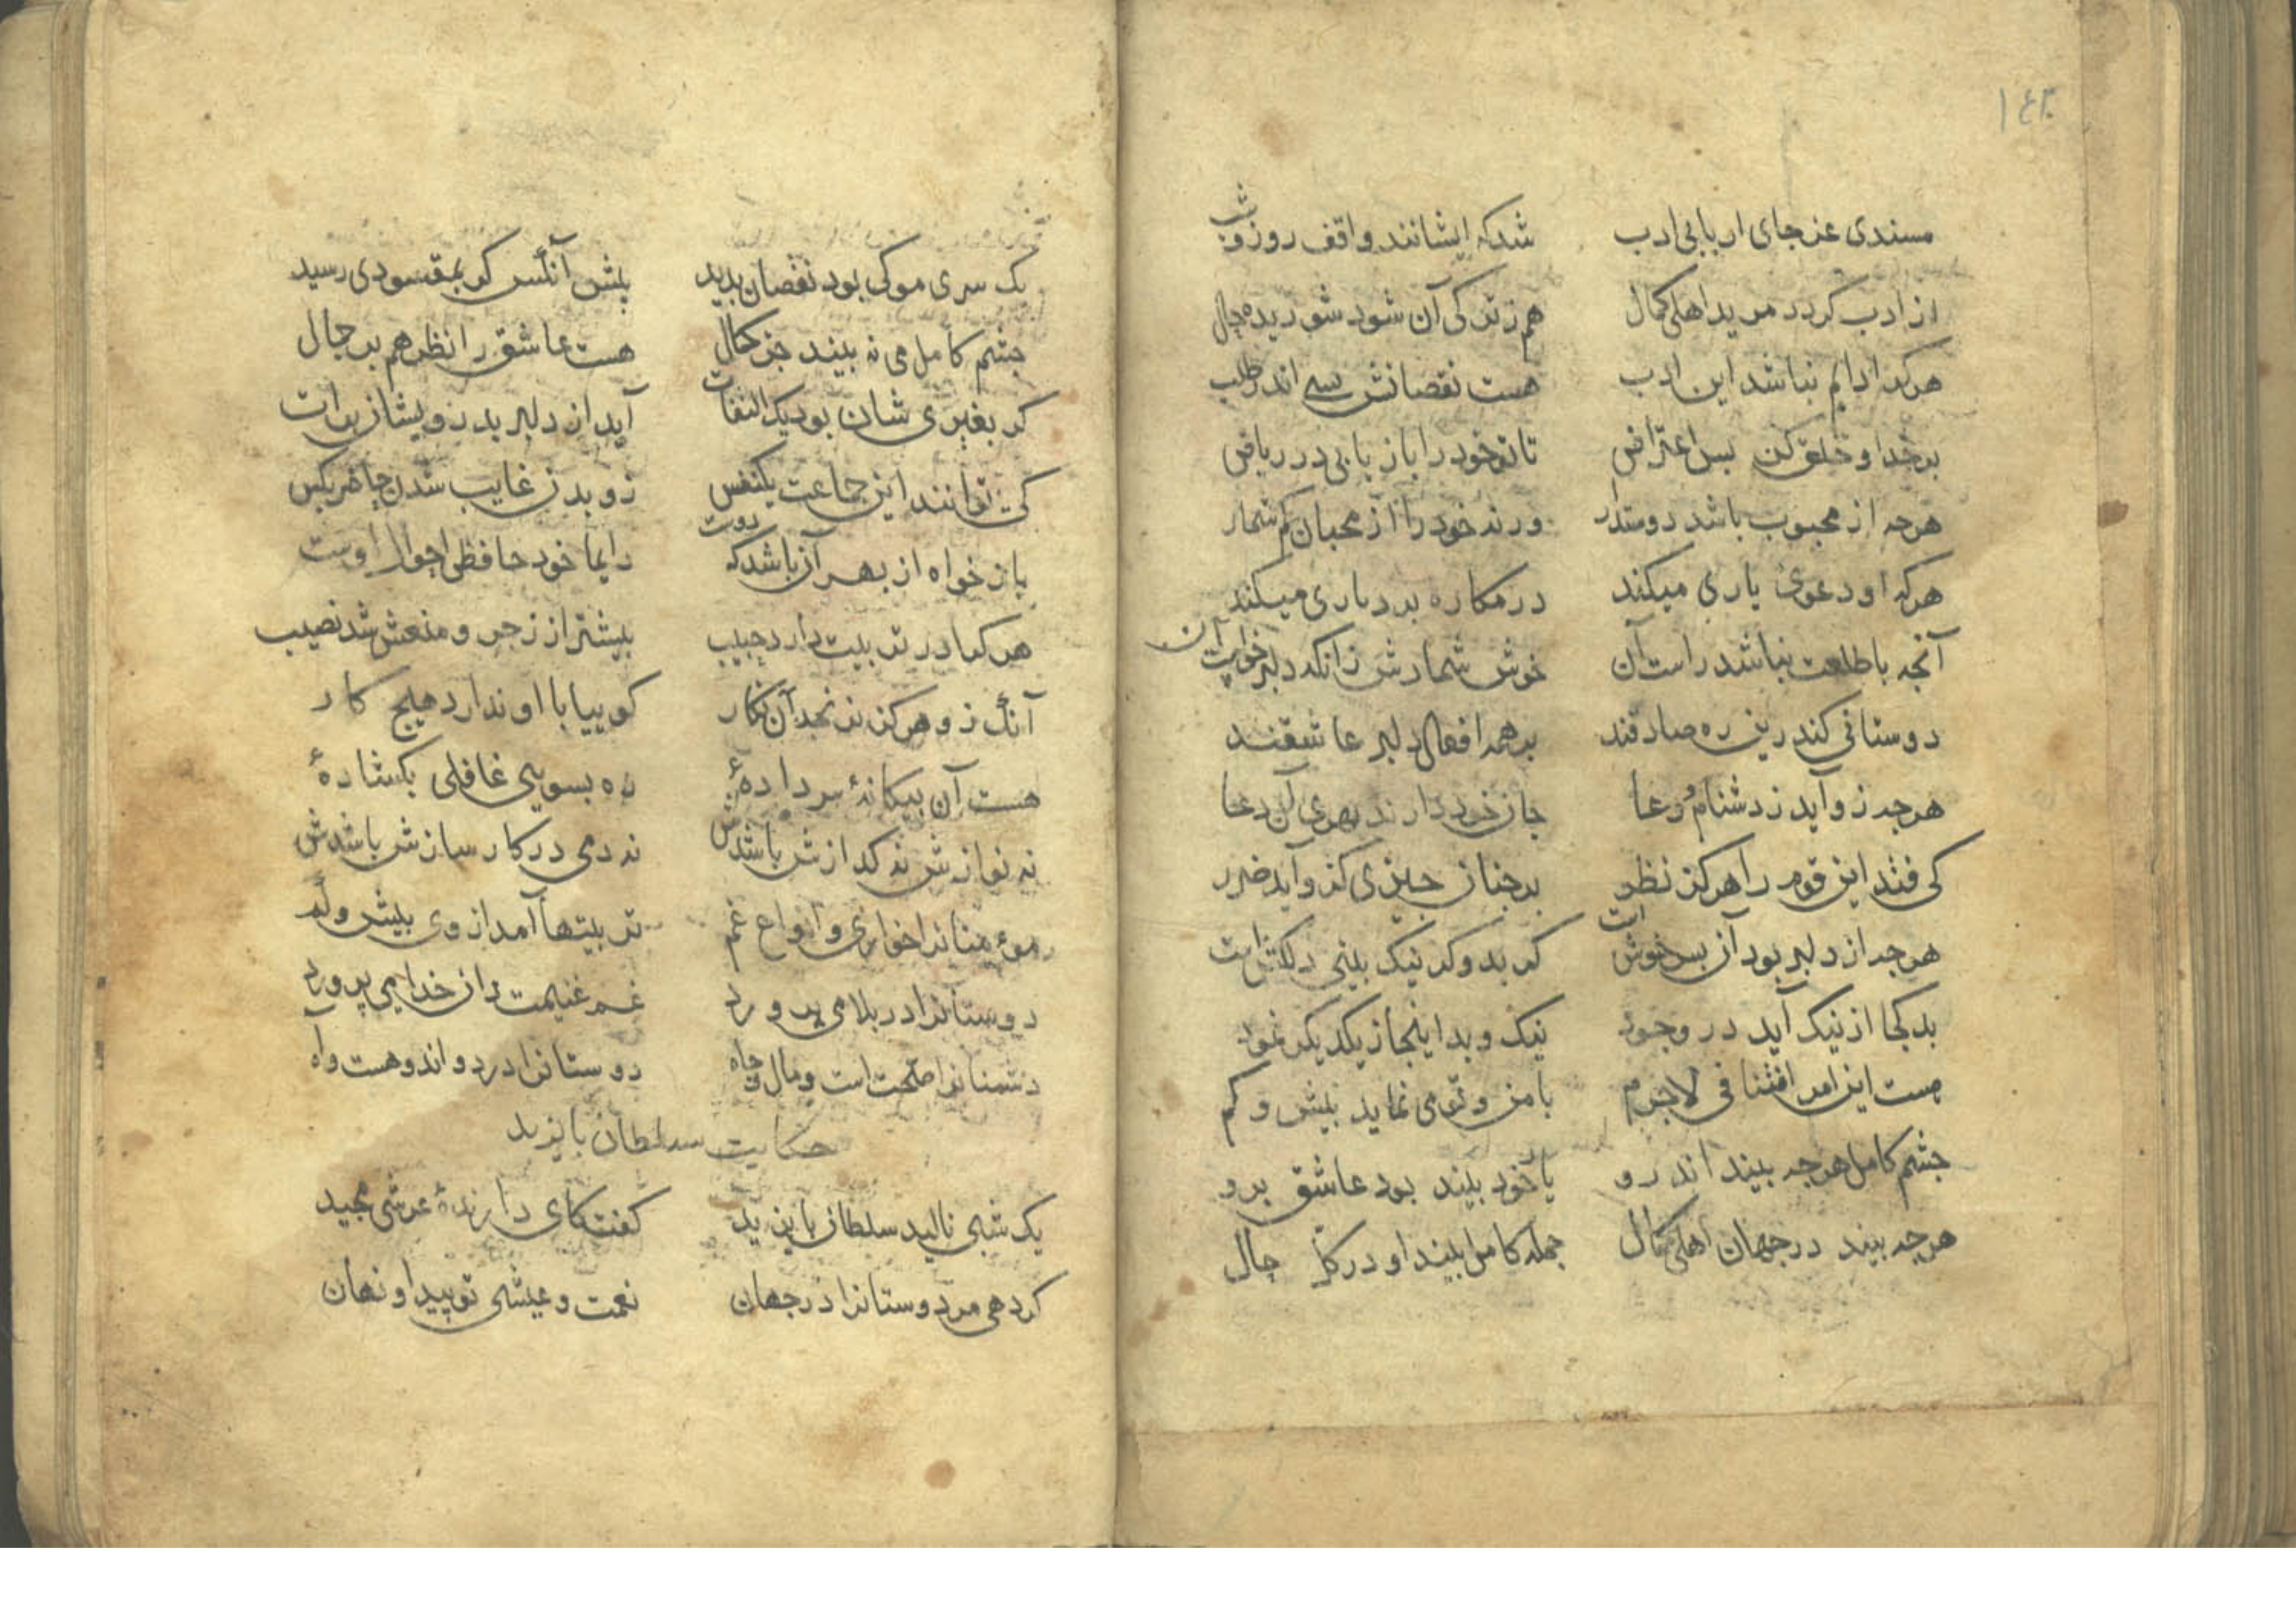 ۱۴۳
مسندی عز جای اربابی ادب شد که ایشانند واقف روز و شب
از ادب کردد مرید اهلی کمال هم ز ترکی آن شود شوریده حال
هرکرا دایم نباشد این ادب هست نقصانش بسی اندر طلب
بر خدا و خلق کن بس اعتراض تا تو خود را باز یابی در ریاض
هرچه از محبوب باشد دوستدار ورنه خود را از محبان کم شمار
هرکه او دعوئ یاری میکند در مکاره بردباری میکند
آنچه با طلعت نباشد راست آن خوش شمارش زانکه دلبر خواست آن
دوستانی کندرین ره صادقند بر همه افعال دلبر عاشقند
هرچه زو آید ز دشنام و دعا جان خود دارند بهری آن دعا
کی فتد این قوم را هرکز نظر بر چنان چیزی کزو آید ضرر
هرچه از دلبر بود آن بس خوش است کر بد و کر نیک بینی دلکش است
بد کجا از نیک آید در وجود نیک و بد اینجا ز یکدیکر نمود
هست این امر اضافی لاجرم با من و تو می نماید بیش و کم
چشم کامل هرچه بیند اندرو یار خود بیند بود عاشق برو
هرچه بیند در جهان اهلی کمال جمله کامل بیند او در کل حال
یک سری موکی بود نقصان بدید پیش آنکس کو بمقسودی رسید
چشم کامل می نه بیند جز کمال هست عاشق را نظر هم بر جمال
کر بغیری شان بود یک التفات آید از دلبر بدر و پیشاز برات
کی توانند این جماعت یکنفس زو بدن غایب شدن حاضر بکس
باز خواه از بهر آن باشد که دوست دایما خود حافظی احوال اوست
هر کرا در تربیت دارد حبیب بیشتر از زجر و منعش شد نصیب
آنک زو هرکز نرنجد آن نکار کوییا با او ندارد هیچ کار
هست آن بیکانهٔ سر دادهٔ ره بسویی غافلی بکشادهٔ
نه نوازش نه کدازش باشدش نه دمی در کار سازش باشدش
مؤمنانرا خواری و انواع غم تربیتها آمد از وی بیش و کم
دوستانرا در بلا می پرورد غم غنیمت دان خدا می پرورد
دشمنانرا صحت است و مال و جاه دوستانرا درد و اندوهست و آه
حکایت سلطان بایزید
یک شبی نالید سلطان بایزید کفت کای دارندهٔ عرشی مجید
کر دهی مر دوستانرا در جهان نعمت و عیشی تو پیدا و نهان